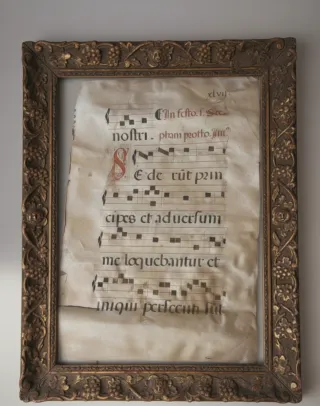 clvii
In festo. s. Ste
nostri. phani protho. īni
S E de rūt prin
cipes et adversum
me loquebantur et
iniqui persecuti sūt